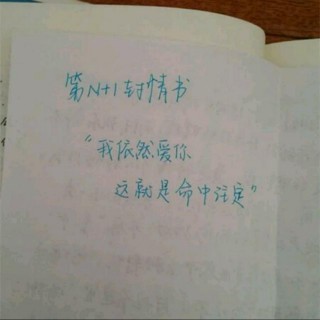 第N+1封情书
“我依然爱你
这就是命中注定”